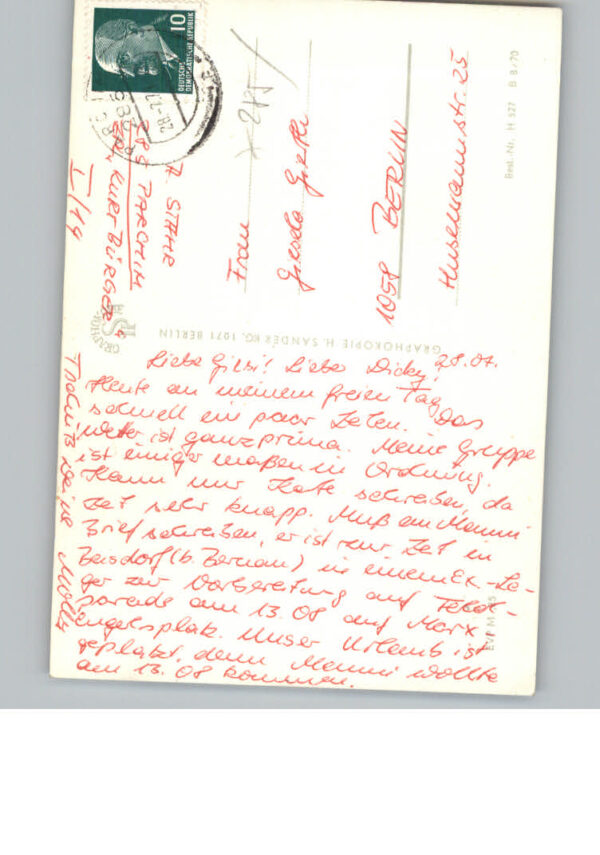 10
DEUTSCHE
DEMOKRATISCHE REPUBLIK
28.-7.
A. STAHR
284 PARCHIM
KURT BÜRGER
I/14
Frau
Gisela
1058 BERLIN
Husemannstr. 25
Best.-Nr. H 527 B 8/70
GRAPHOKOPIE H. SANDER KG. 1071 BERLIN
28.07.
Liebe Gilsi! Lieber Dicky!
Heute an meinem freien Tag
schnell ein paar Zeilen. Das
Wetter ist ganz prima. Meine Gruppe
ist einiger maßen in Ordnung.
Kann nur Karte schreiben, da
Zeit sehr knapp. Muß an Manni
Brief schreiben, er ist zur Zeit in
(b. Bernau) in einem Ex-La-
ger zur Vorbereitung auf
parade am 13.08 auf Marx-
Engelsplatz. Unser Urlaub ist
geplatzt, denn Manni wollte
am 13.08 kommen.
Molly